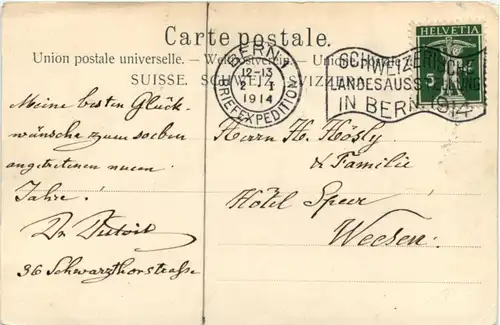 Carte postale.
Union postale universelle. — Weltpostverein. — Unione postale
SUISSE. SCHWEIZ. SVIZZERA.
HELVETIA
5
BERN 1
12-13
2. I
1914
BRIEFEXPEDITION
SCHWEIZERISCHE
LANDESAUSSTELLUNG
IN BERN 1914
Meine besten Glück-
wünsche zum soeben
angetretenen neuen
Jahre!
Dr. Dutoit
36 Schwarzthorstrasse
Herrn H. Hösly
& Familie
Hôtel Speer
Weesen.